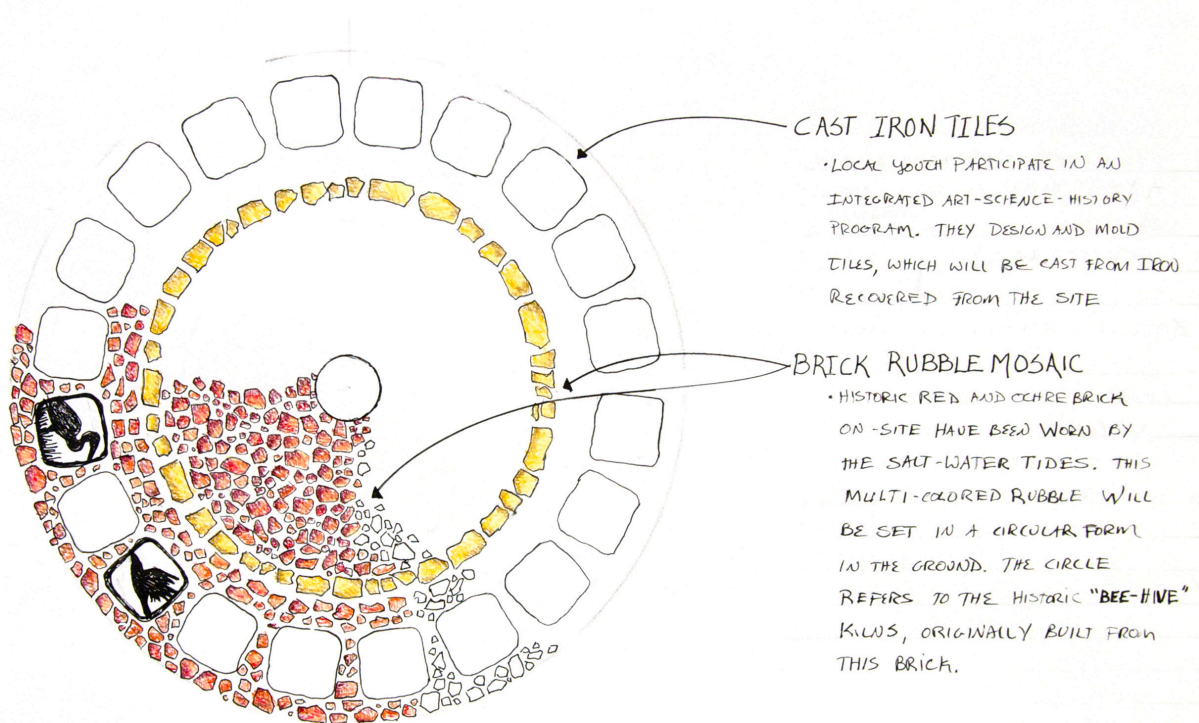 CAST IRON TILES
• LOCAL YOUTH PARTICIPATE IN AN
INTEGRATED ART-SCIENCE-HISTORY
PROGRAM. THEY DESIGN AND MOLD
TILES, WHICH WILL BE CAST FROM IRON
RECOVERED FROM THE SITE
BRICK RUBBLE MOSAIC
• HISTORIC RED AND OCHRE BRICK
ON-SITE HAVE BEEN WORN BY
THE SALT-WATER TIDES. THIS
MULTI-COLORED RUBBLE WILL
BE SET IN A CIRCULAR FORM
IN THE GROUND. THE CIRCLE
REFERS TO THE HISTORIC "BEE-HIVE"
KILNS, ORIGINALLY BUILT FROM
THIS BRICK.